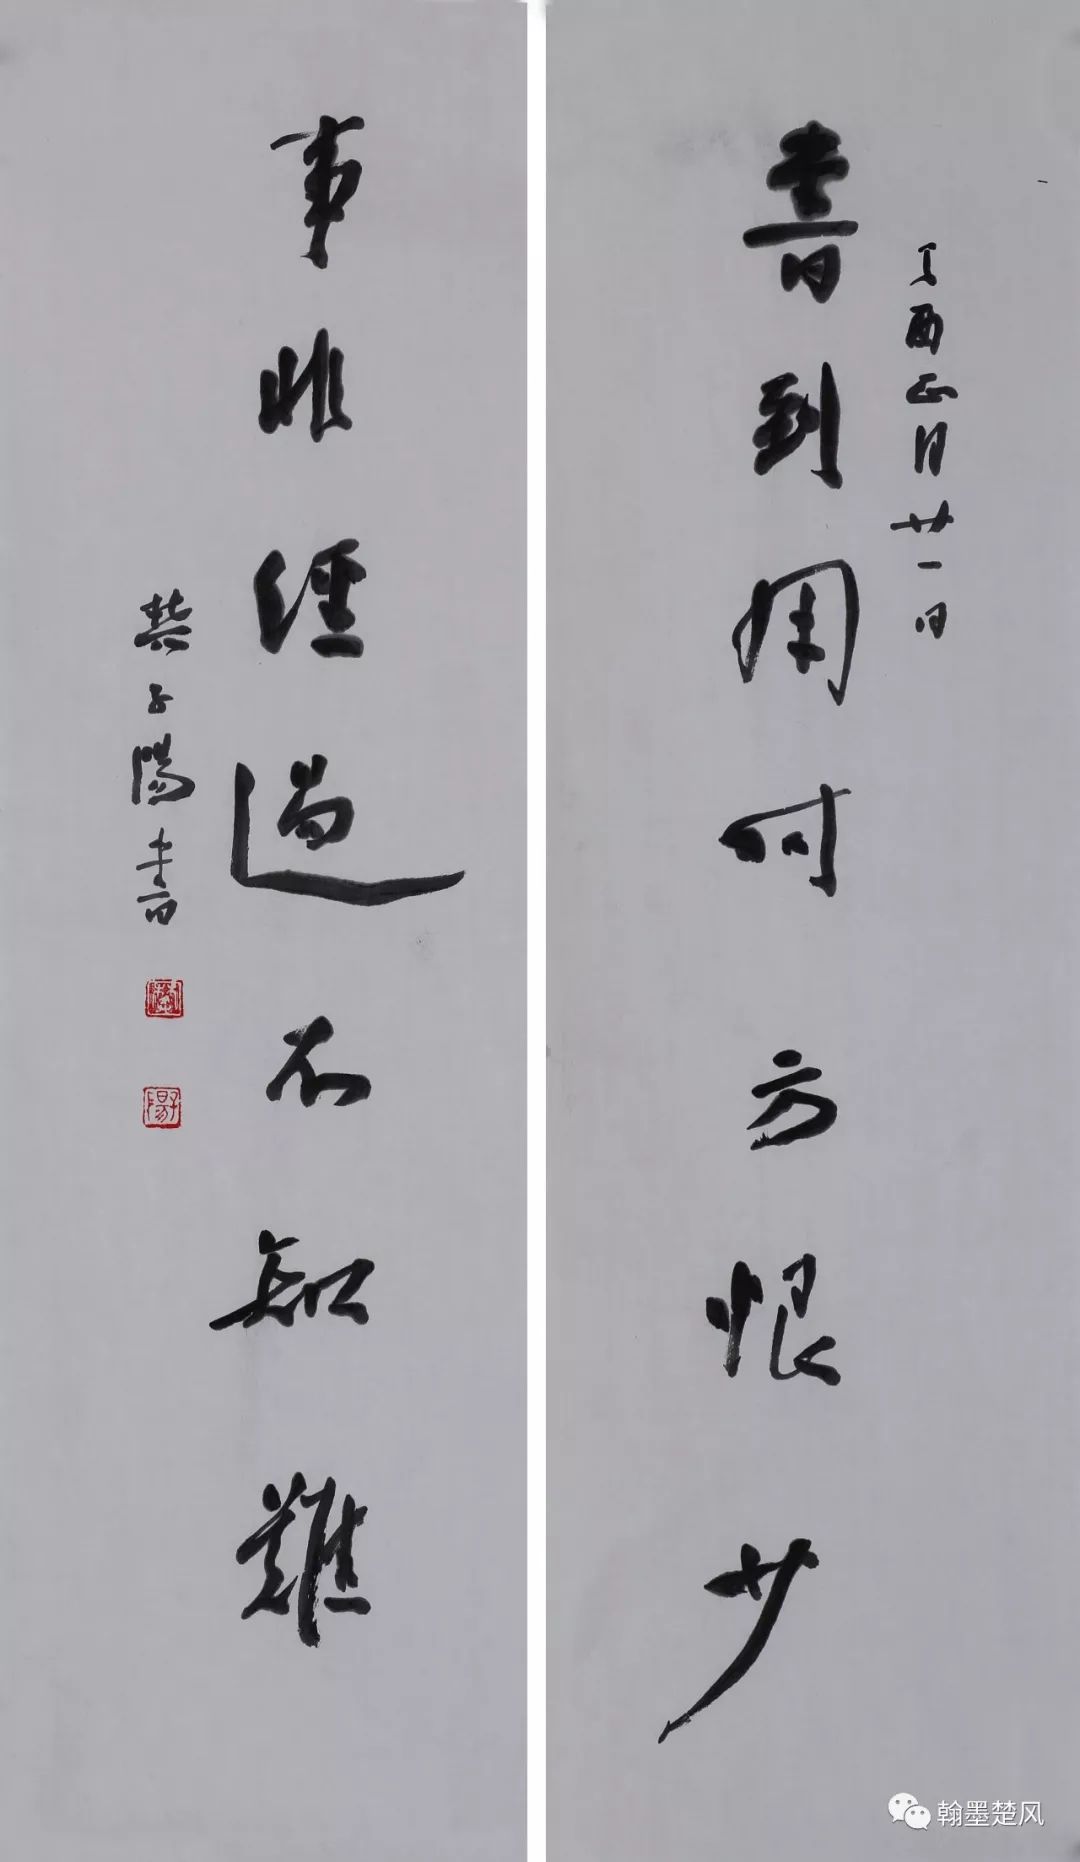 丁酉正月廿一日
書到用时方恨少
事非經過不知難
子陽書
翰墨楚风